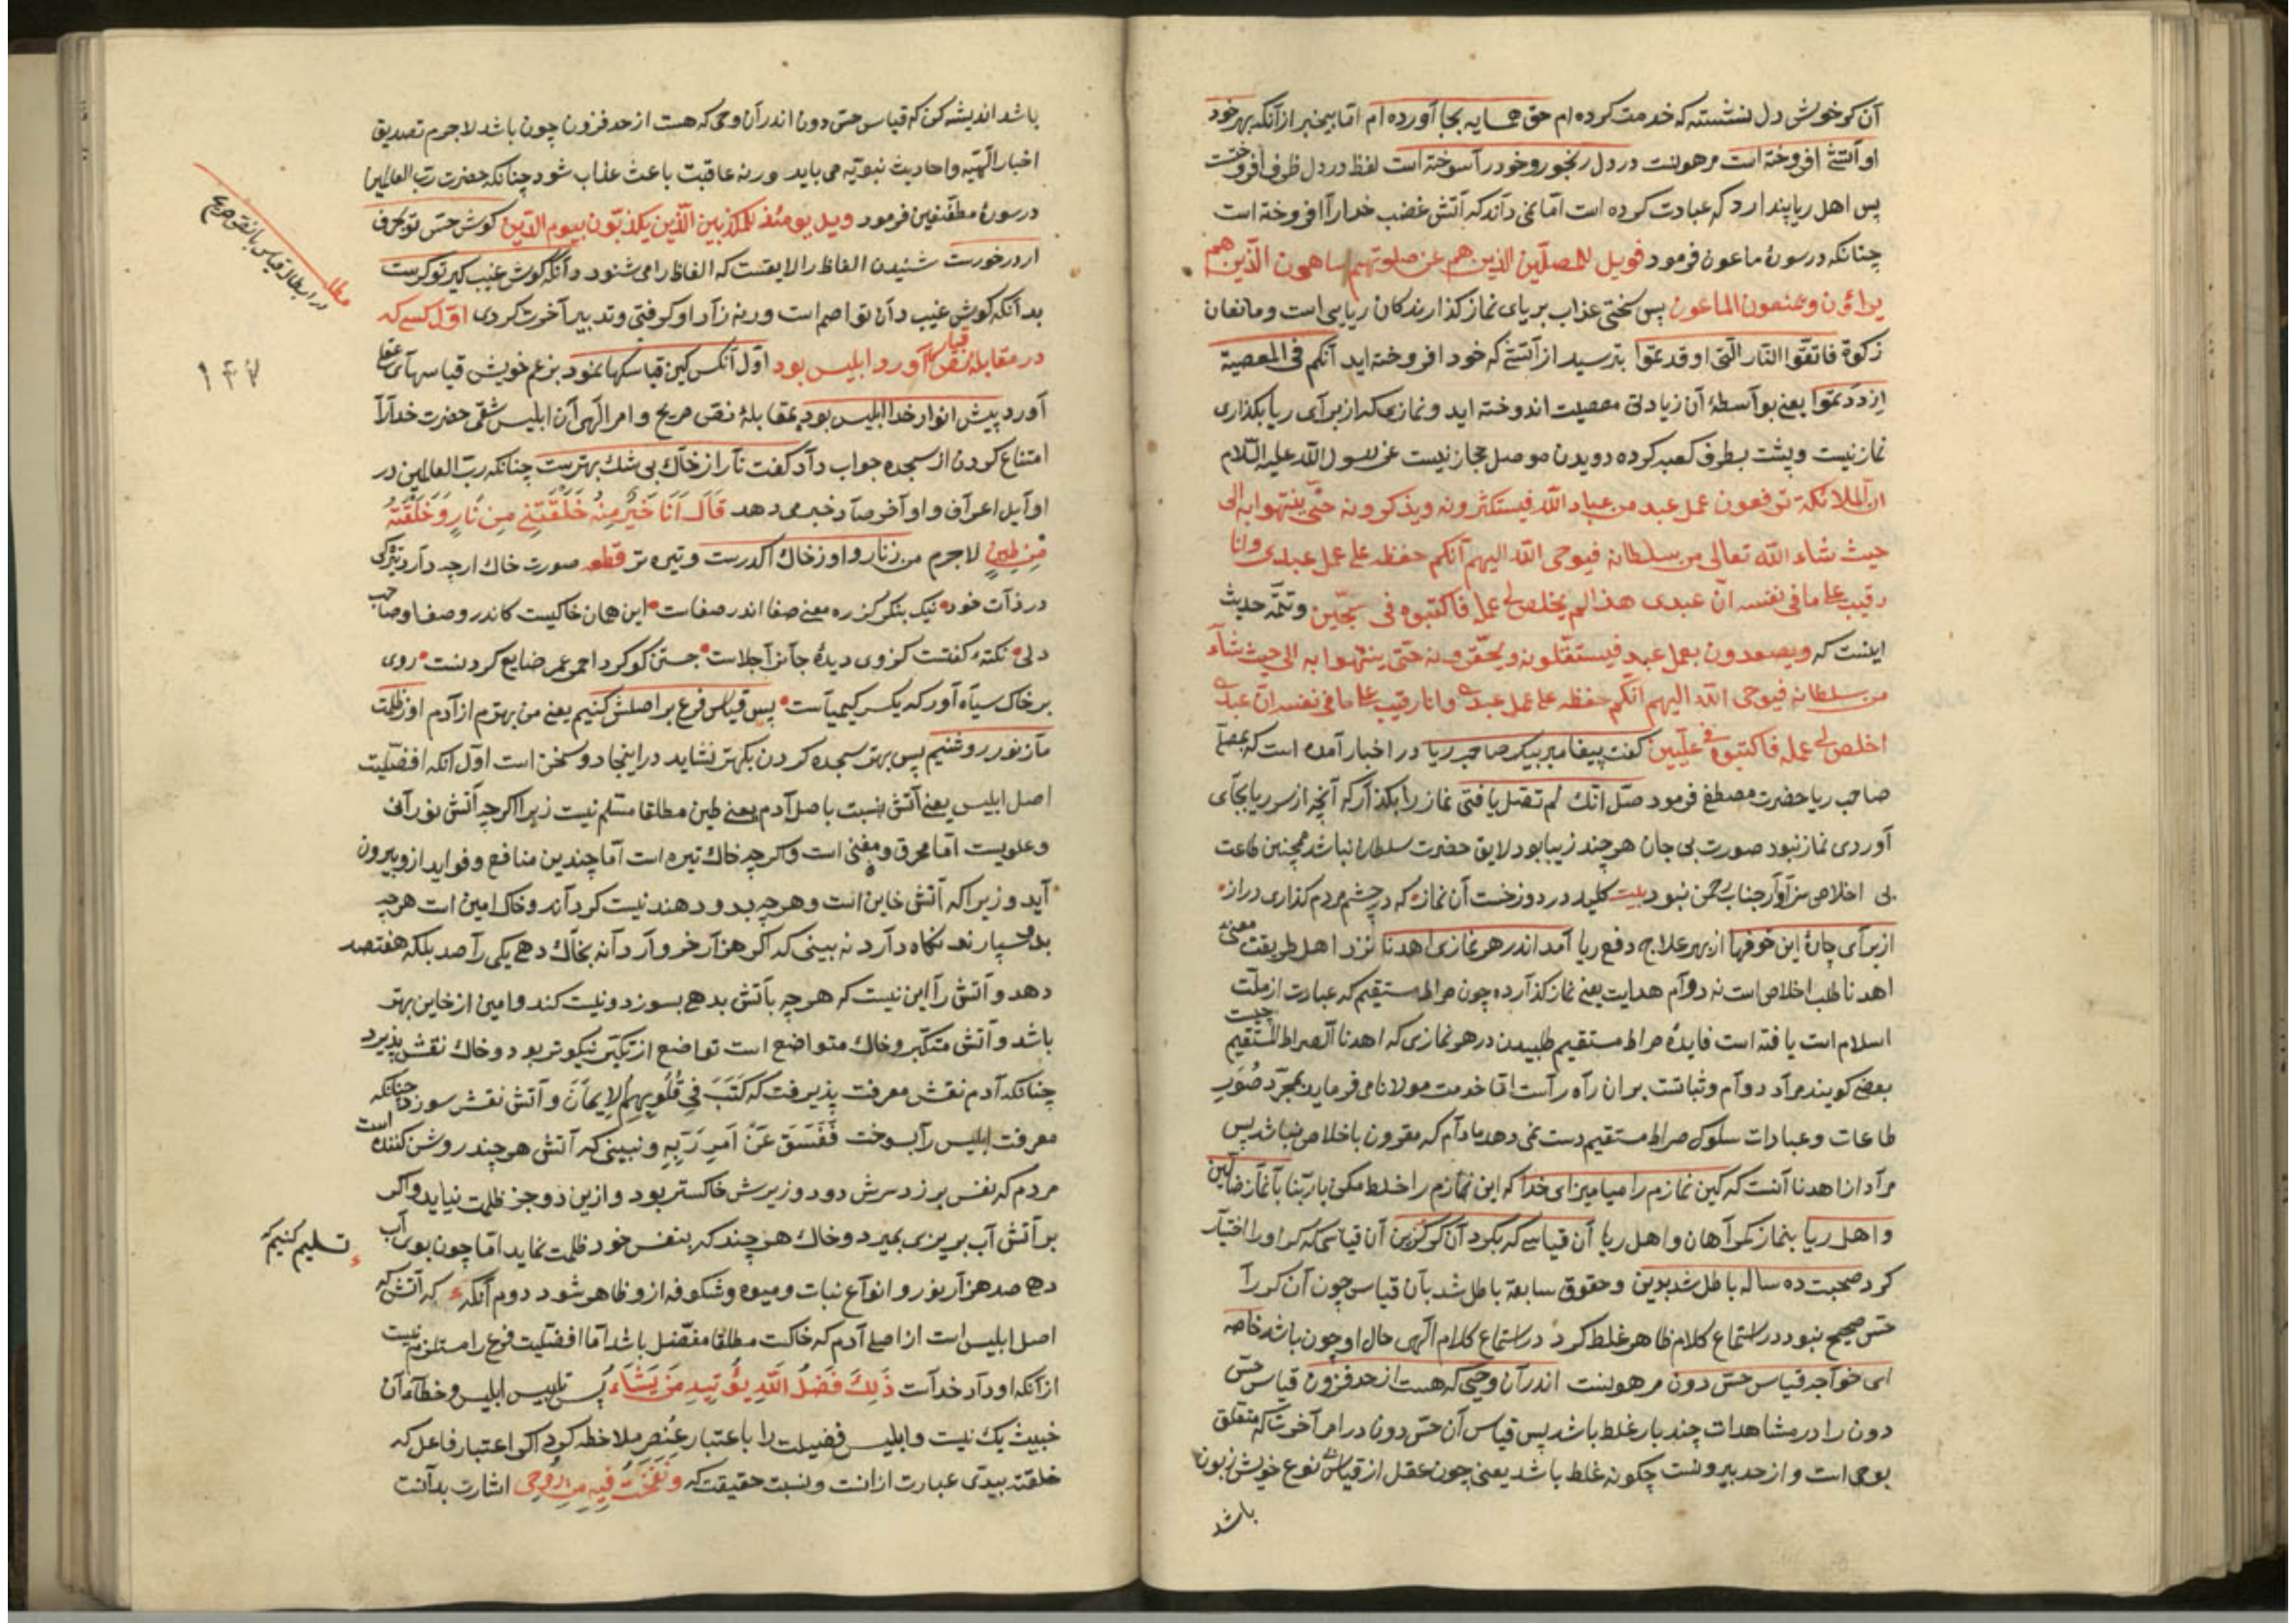 آن کر خوش دل نشسته که خدمت کرده ام حق همسایه بجا آورده ام اما بیخبر از آنکه بهر خود
او آتشی افروخته است مرهونست در دل رنجور و خود را سوخته است لفظ در دل ظرف افروختست
پس اهل ریا پندارد که عبادت کرده است اما نمی داند که آتش غضب خدا را افروخته است
چنانکه در سورهٔ ماعون فرمود فویل للمصلّین الذین هم عن صلوتهم ساهون الّذین هم
یراؤن و یمنعون الماعون پس سختی عذاب بر یای نماز کذارندکان ریایی است و مانعان
زکوة فاتقوا النار الّتی اوقدتموا بترسید از آتشی که خود افروخته اید آنکم فی المعصیة
ازددتموا یعنی بواسطهٔ آن زیادتی معصیت اندوخته اید و نمازی که از برای ریا بکذاری
نماز نیست و پشت بطرف کعبه کرده دویدن موصل حجاز نیست عن رسول الله علیه السّلام
ان الملائکة ترفعون عمل عبد من عباد اللّه فیستکثرونه ویذکرونه حتّی ینتهوا به الی
حیث شاء اللّه تعالی من سلطانه فیوحی اللّه الیهم آنکم حفظه علی عمل عبدی وانا
رقیب علی ما فی نفسه انّ عبدی هذا لم یخلص لی عمله فاکتبوه فی سجّین و تتمّه حدیث
اینست که ویصعدون بعمل عبد فیستقلّونه ویحقرونه حتّی ینتهوا به الی حیث شاء
من سلطانه فیوحی اللّه الیهم انّکم حفظه علی عمل عبدی وانا رقیب علی ما فی نفسه انّ عبدی
اخلص لی عمله فاکتبوه فی علّیین کفت پیغامبر بیک صاحب ریا در اخبار آمده است که بمصلّی
صاحب ریا حضرت مصطفی فرمود صلّ انّک لم تصل یا فتی نماز را بکذار که آنچه از سر ریا بجای
آوردی نماز نبود صورت بی جان هر چند زیبا بود لایق حضرت سلطان نباشد همچنین طاعت
بی اخلاص سزاوار جناب رحمن نبود بیت کلید در دوزخست آن نماز که در چشم مردم کذاری دراز
از برای چارهٔ این خوفها از بهر علاج دفع ریا آمد اندر هر نمازی اهدنا نزد اهل طریقت معنی
اهدنا طلب اخلاص است نه دوام هدایت یعنی نماز کذارده چون صراط مستقیم که عبارت از ملّت
اسلام است یافته است فایدهٔ صراط مستقیم طلبیدن در هر نمازی که اهدنا الصراط المستقیم چیست
بعضی کویند مراد دوام وثباتست بر ان راه راست اما خدمت مولانا می فرماید بمجرّد صُوَر
طاعات و عبادات سلوک صراط مستقیم دست نمی دهد مادام که مقرون باخلاص نباشد پس
مراد از اهدنا آنست که کین نمازم را میامیز ای خدا که این نمازم را خلط مکن یا ربّنا با نماز ضالّین
و اهل ریا بنماز کمراهان و اهل ریا آن قیاسی که بکرد آن کر کزین آن قیاسی که کر اورا اختیار
کرد صحبت ده ساله باطل شد بدین و حقوق سابقه باطل شد بآن قیاس چون آن کر را
حسّ صحیح نبود در استماع کلام ظاهر غلط کرد در استماع کلام الهی حال او چون باشد خاصه
ای خواجه قیاس حسّ دون مرهونست اندر آن وحیی که هست از حد فزون قیاس حسّ
دون را در مشاهدات چند بار غلط باشد پس قیاس آن حسّ دون در امر آخرت که متعلق
بوحی است و از حد بیرونست چکونه غلط باشد یعنی چون عقل از قیاس نوع خویش زبون
باشد
باشد اندیشه کن که قیاس حسّ دون اندر آن وحی که هست از حد فزون چون باشد لاجرم تصدیق
اخبار الٓهیّه و احادیث نبویّه می باید ورنه عاقبت باعث عذاب شود چنانکه حضرت ربّ العالمین
در سورهٔ مطفّفین فرمود ویل یومئذ للمکذبین الّذین یکذبون بیوم الدّین کوش حسّ تو بحرف
ار درخورست شنیدن الفاظ را لایقست که الفاظ را می شنود دانکه کوش غیب کیر تو کرست
بدانکه کوش غیب دان تو اصم است ورنه زاد او کرفتی و تدبیر آخرت کردی اوّل کسی که
در مقابلهٔ نصّ قیاس آورد ابلیس بود اوّل آنکس کین قیاسکها نمود بزعم خویش قیاسهای عقلی
آورد پیش انوار خدا ابلیس بود بمقابلهٔ نصّ صریح و امر الٓهی آن ابلیس شقی حضرت خدا را
امتناع کردن از سجده جواب داد کفت نار از خاک بی شک بهترست چنانکه ربّ العالمین در
اوایل اعراف و اواخر صاد خبر می دهد قَالَ اَنَا خَیْرٌ مِنْهُ خَلَقْتَنِی مِنْ نَارٍ وَخَلَقْتَهُ
مِنْ طِینٍ لاجرم من ز نار و او ز خاک اکدرست و تیره تر قطعه صورت خاک ارچه دارد تیرکی
در ذات خود نیک بنکر کز ره معنی صفا اندر صفاست این همان خاکیست کاندر وصف او صاحب
دلی نکته کفتست کز وی دیدهٔ جانرا جلاست جستن کوکرد احمر عمر ضایع کردنست روی
بر خاک سیاه آور که یکسر کیمیاست پس قیاس فرع بر اصلش کنیم یعنی من بهترم از آدم او ز ظلمت
ما ز نور روشنیم پس بهتر سجده کردن بکهتر نشاید در اینجا دو سخن است اوّل انکه افضلیت
اصل ابلیس یعنی آتش نسبت باصل آدم یعنی طین مطلقا مسلّم نیست زیرا اکرچه آتش نورانی
و علویست اما محرق و مفنی است و اکرچه خاک تیره است امّا چندین منافع و فواید ازو بیرون
آید و زیرا که آتش خاین است و هرچه بدو دهند نیست کرداند و خاک امین است هرچه
بدو سپارند نکاه دارد نه بینی که اکر هزار خروار دانه بخاک دهی یکی را صد بلکه هفتصد
دهد و آتش را این نیست که هرچه بآتش بدهی بسوزد و نیست کند و امین از خاین بهتر
باشد و آتش متکبّر و خاک متواضع است تواضع از تکبّر نیکوتر بود و خاک نقش پذیرد
چنانکه آدم نقش معرفت پذیرفت که کَتَبَ فِی قُلُوبِهِمُ الْاِیمَانَ و آتش نقش سوزد چنانکه
معرفت ابلیس را بسوخت فَفَسَقَ عَنْ اَمْرِ رَبِّهِ و نبینی که آتش هر چند روشن کننده است
مردم که نفس برزد سرش دود و زیرش خاکستر بود و ازین دو جز ظلمت نیاید و اکر
بر آتش آب بریزی بمیرد و خاک هر چند که بنفس خود ظلمت نماید امّا چون بوی آب
دهی صد هزار نور و انواع نبات و میوه و شکوفه ازو ظاهر شود دوم آنکه که آتش که
اصل ابلیس است از اصل آدم که خاکست مطلقا مفضّل باشد اما افضلیت فرع را مستلزم نیست
از آنکه او داد خداست ذَلِکَ فَضْلُ اللّهِ یُؤْتِیهِ مَنْ یَشَاءُ پس تلبیس ابلیس و خطاء آن
خبیث یک نیست و ابلیس فضیلت را باعتبار عنصر ملاحظه کرد اکر اعتبار فاعل که
خلقته بیدی عبارت از انست و نسبت حقیقت که وَنَفَخْتُ فِیهِ مِنْ رُوحِی اشارت بدانست
مطلب
در ابطال قیاس با نصّ صریح
۱۴۷
تسلیم کنیم که